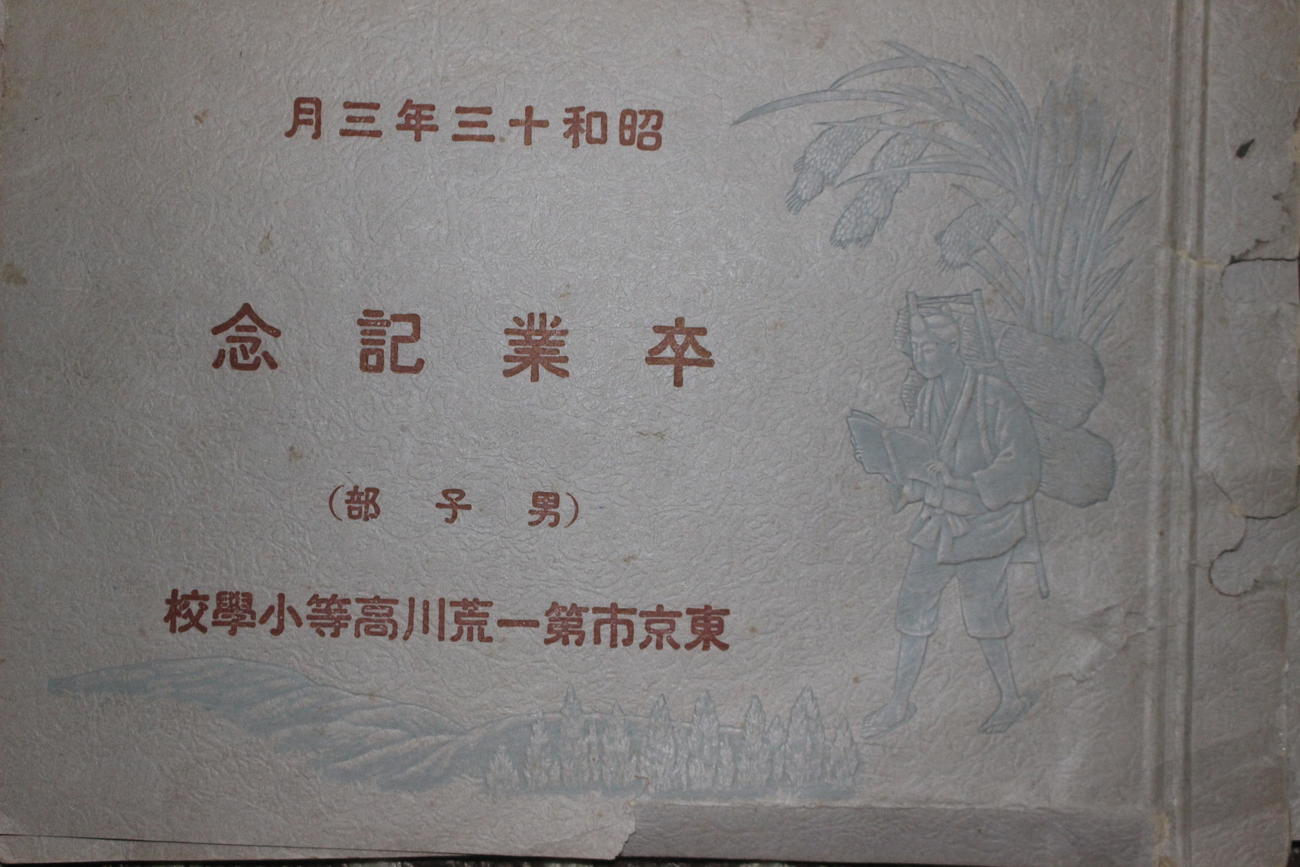 昭和十三年三月
卒業記念
(男子部)
東京市第一荒川高等小學校